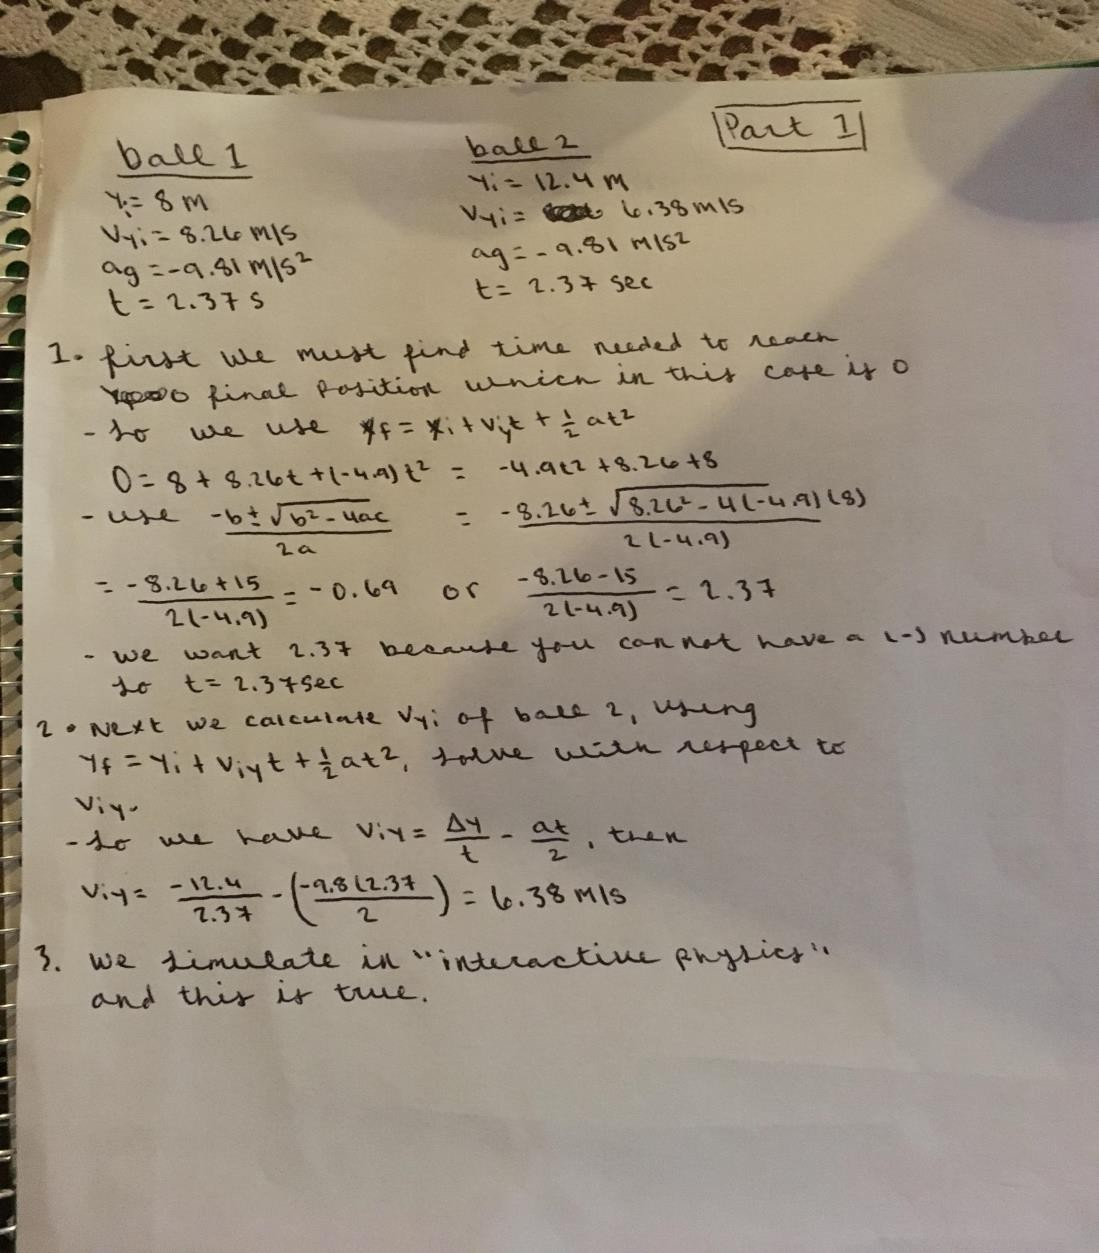 Part 1
ball 1
Yi = 8 m
Vyi = 8.26 m/s
ag = -9.81 m/s²
t = 2.37 s
ball 2
Yi = 12.4 m
Vyi = 6.38 m/s
ag = -9.81 m/s²
t = 2.37 sec
1. first we must find time needed to reach
final position which in this case is 0
- so we use yf = yi + viyt + 1/2 at²
0 = 8 + 8.26t + (-4.9)t² = -4.9t² + 8.26 + 8
- use (-b ± √(b² - 4ac))/2a = (-8.26 ± √(8.26² - 4(-4.9)(8)))/2(-4.9)
= (-8.26 + 15)/2(-4.9) = -0.69 or (-8.26 - 15)/2(-4.9) = 2.37
- we want 2.37 because you can not have a (-) number
so t = 2.37 sec
2. Next we calculate Vyi of ball 2, using
Yf = Yi + Viyt + 1/2 at², solve with respect to
Viy.
- so we have Viy = Δy/t - at/2, then
Viy = -12.4/2.37 - (-9.8(2.37/2) = 6.38 m/s
3. we simulate in "interactive physics"
and this is true.